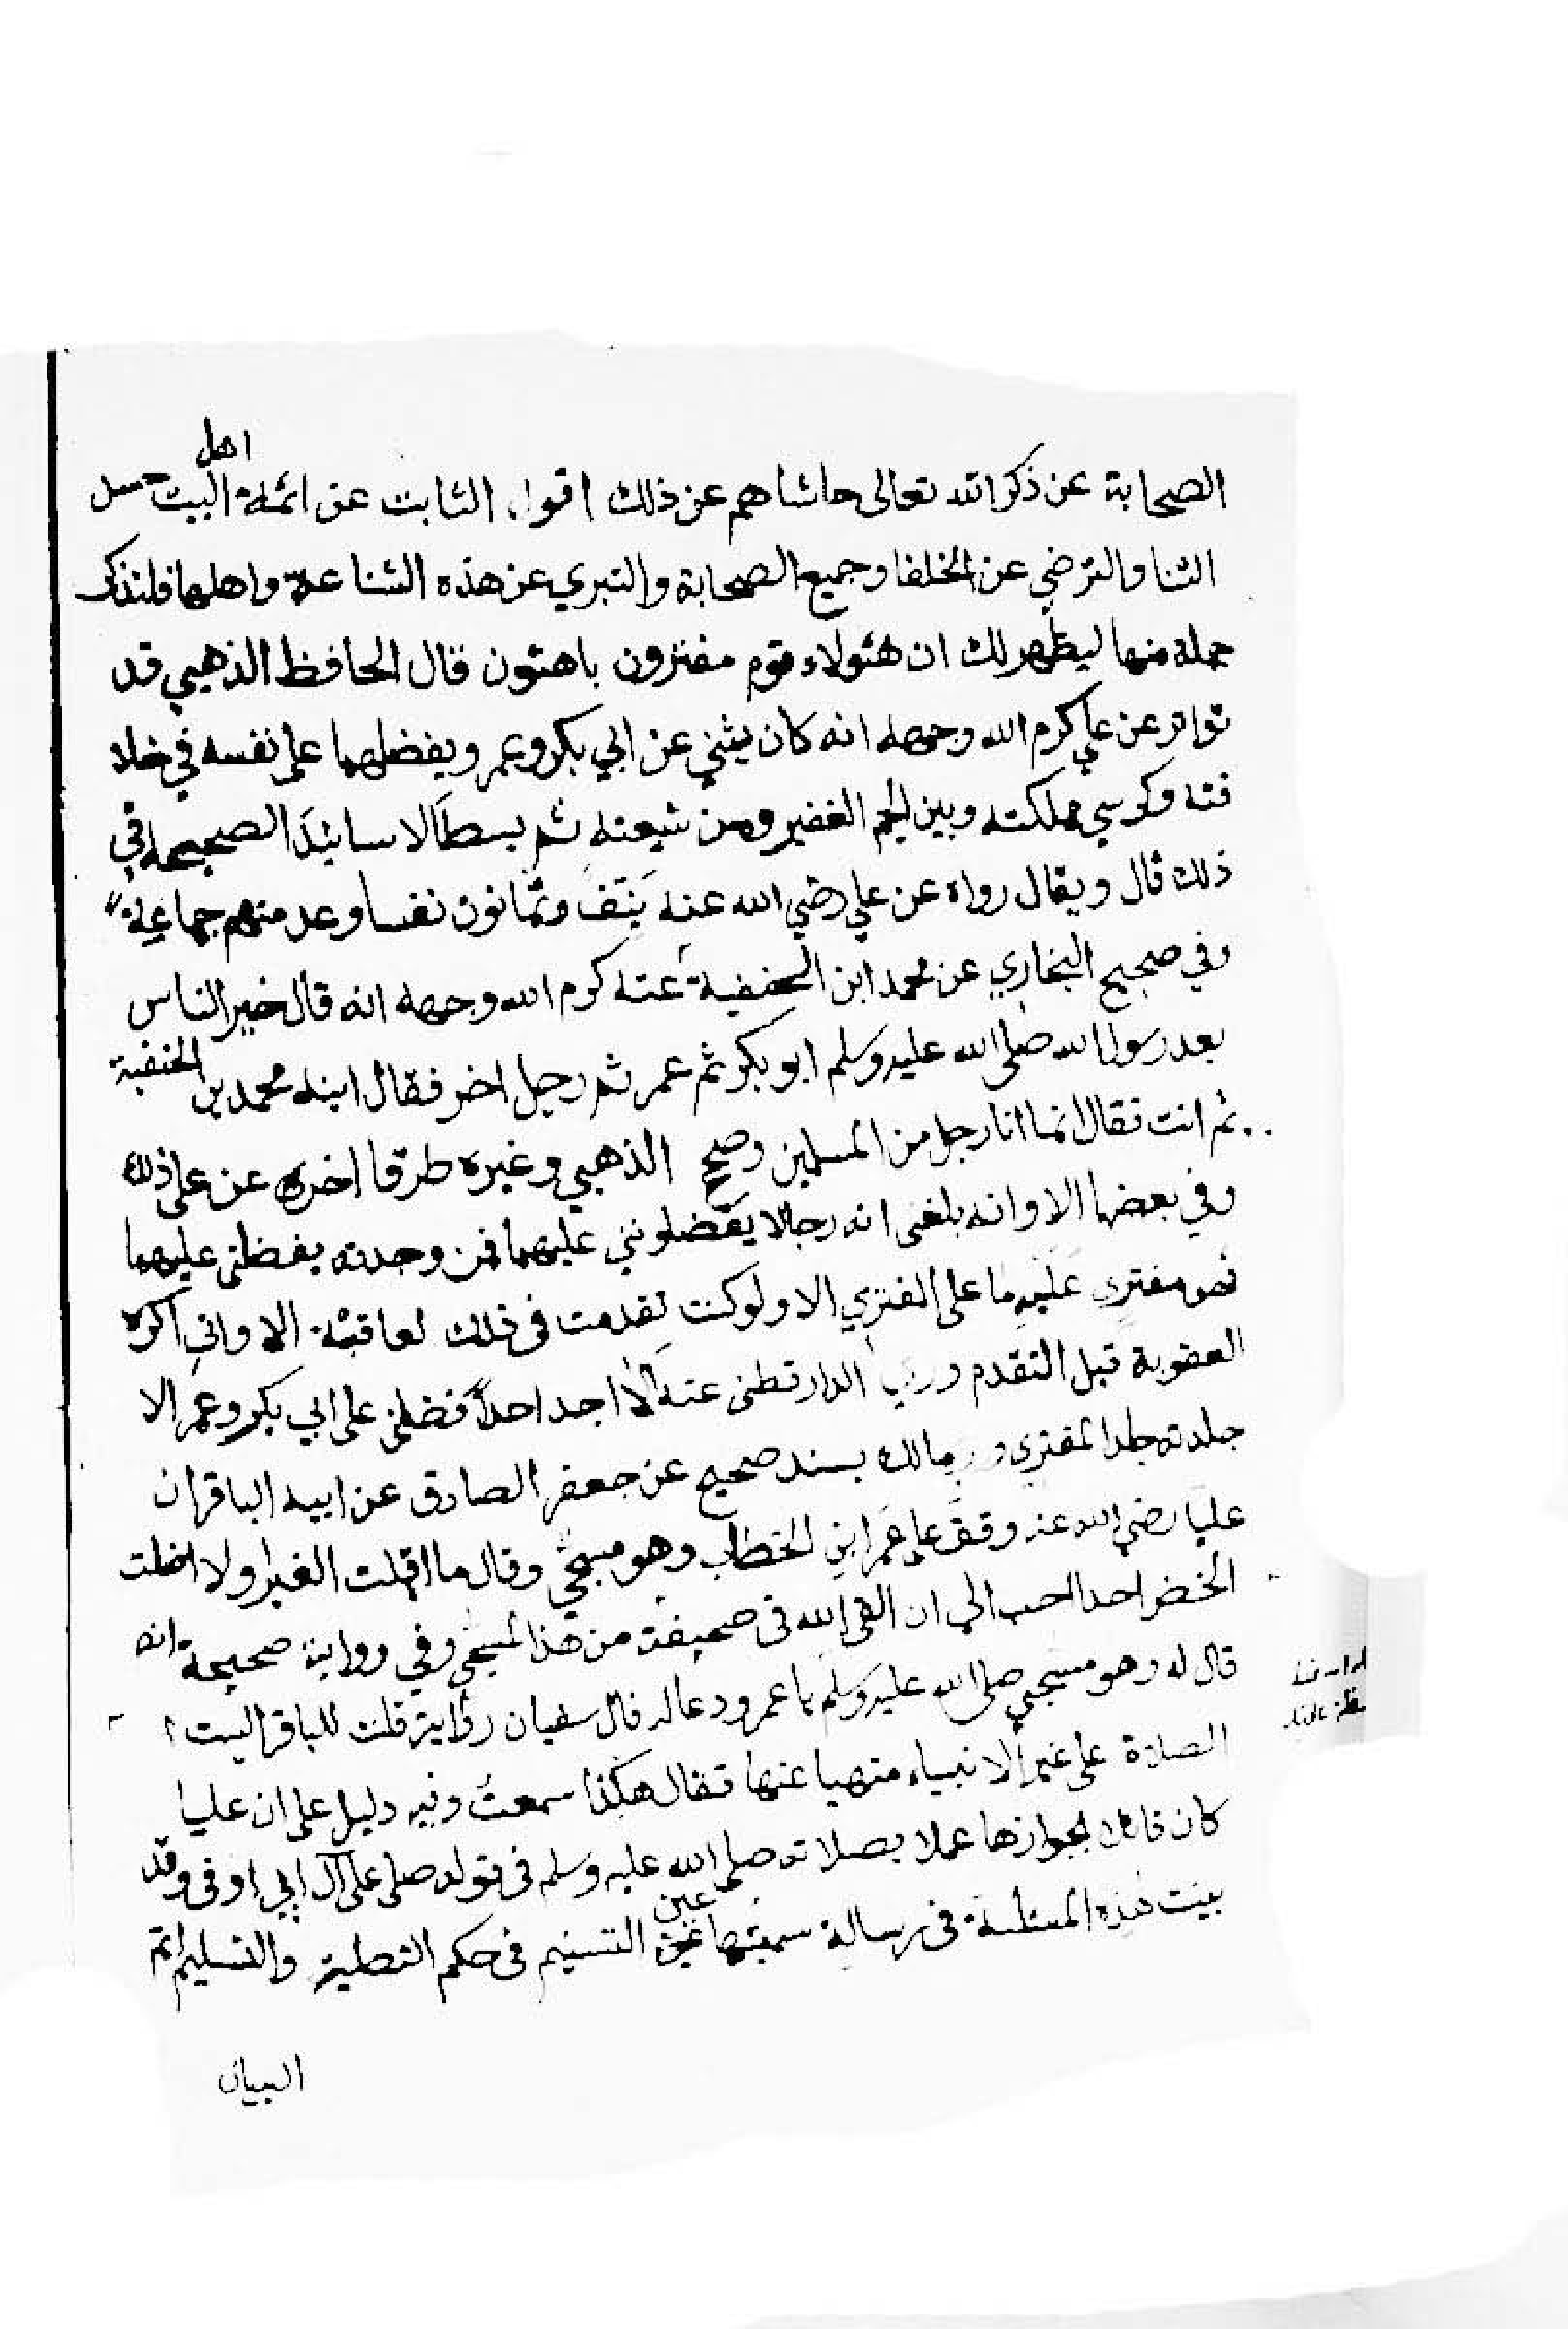 اهل
الصحابة عن ذكر الله تعالى حاشاهم عن ذلك اقول الثابت عن ائمة البيت
الثنا والترضي عن الخلفا وجميع الصحابة والتبري عن هذه الشناعة واهلها فلنذكر
جملة منها ليظهر لك ان هئولاء قوم مفترون باهتون قال الحافظ الذهبي قد
تواتر عن علي كرم الله وجهه انه كان يثني عن ابي بكر وعمر ويفضلهما على نفسه في خلا
فته وكرسي مملكته وبين الجم الغفير ومن شيعته ثم بسط الاسانيد الصحيحة في
ذلك قال ويقال رواه عن علي رضي الله عنه ينتف وثمانون نفسا وعد منهم جماعة
وفي صحيح البخاري عن محمد ابن الحنفية عنه كرم الله وجهه انه قال خير الناس
بعد رسول الله صلى الله عليه وسلم ابو بكر ثم عمر ثم رجل اخر فقال ابنه محمد بن الحنفية
ثم انت فقال انما انا رجل من المسلمين وصحح الذهبي وغيره طرقا اخرى عن علي ذلك
وفي بعضها الا وانه بلغنى انه رجالا يفضلونني عليهما فمن وجدته يفظلني عليهما
فهو مفتري عليه ما على المفتري الا ولو كنت تقدمت فى ذلك لعاقبته الا واني اكره
العقوبة قبل التقدم الدارقطنى عنه لا اجد احدا فضلنى على ابي بكر وعمر الا
جلدته جلد المفتري مالك بسند صحيح عن جعفر الصادق عن ابيه الباقر ان
عليا رضي الله عنه وقف على عمر ابن الخطاب وهو مسجى وقال ما اقلت الغبرا ولا اظلت
الخضر احدا احب الي ان القى الله فى صحيفته من هذا المسجى وفي رواية صحيحة انه
قال له وهو مسجي صلى الله عليه وسلم يا عمر ودعا له قال سفيان رواية قلت للباقر اليست
الصلاة على غير الانبياء منهيا عنها فقال هكذا سمعت وفيه دليل على ان عليا
كان قائلا بجوازها عملا بصلاته صلى الله عليه وسلم فى قوله صلى على آل ابي اوفى وقد
بينت هذه المسئلة فى رسالة سميتها عين التسنيم فى حكم التصلية والتسليم اتم
البيان